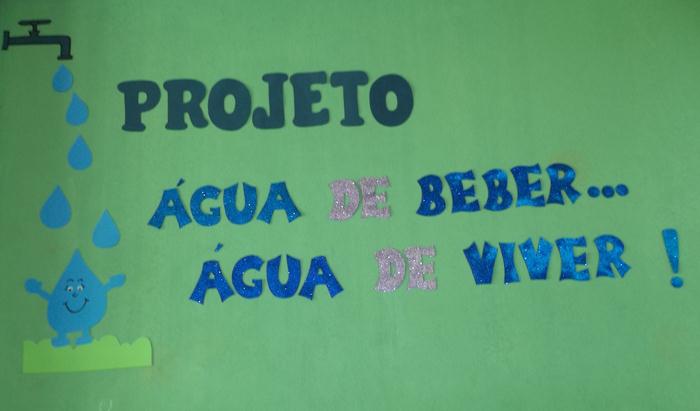 PROJETO
ÁGUA DE BEBER...
ÁGUA DE VIVER !